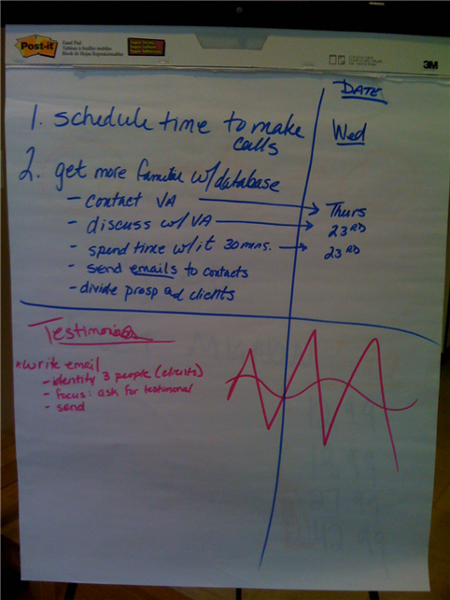 Post-it
Easel Pad
3M
DATE
1. schedule time to make
calls
Wed
2. get more familiar w/database
- contact VA → Thurs
- discuss w/ VA → 23RD
- spend time w/it 30 mns. → 23RD
- send emails to contacts
- divide prosp and clients
Testimonials
*write email
- identity 3 people (clients)
- focus: ask for testimonal
- send